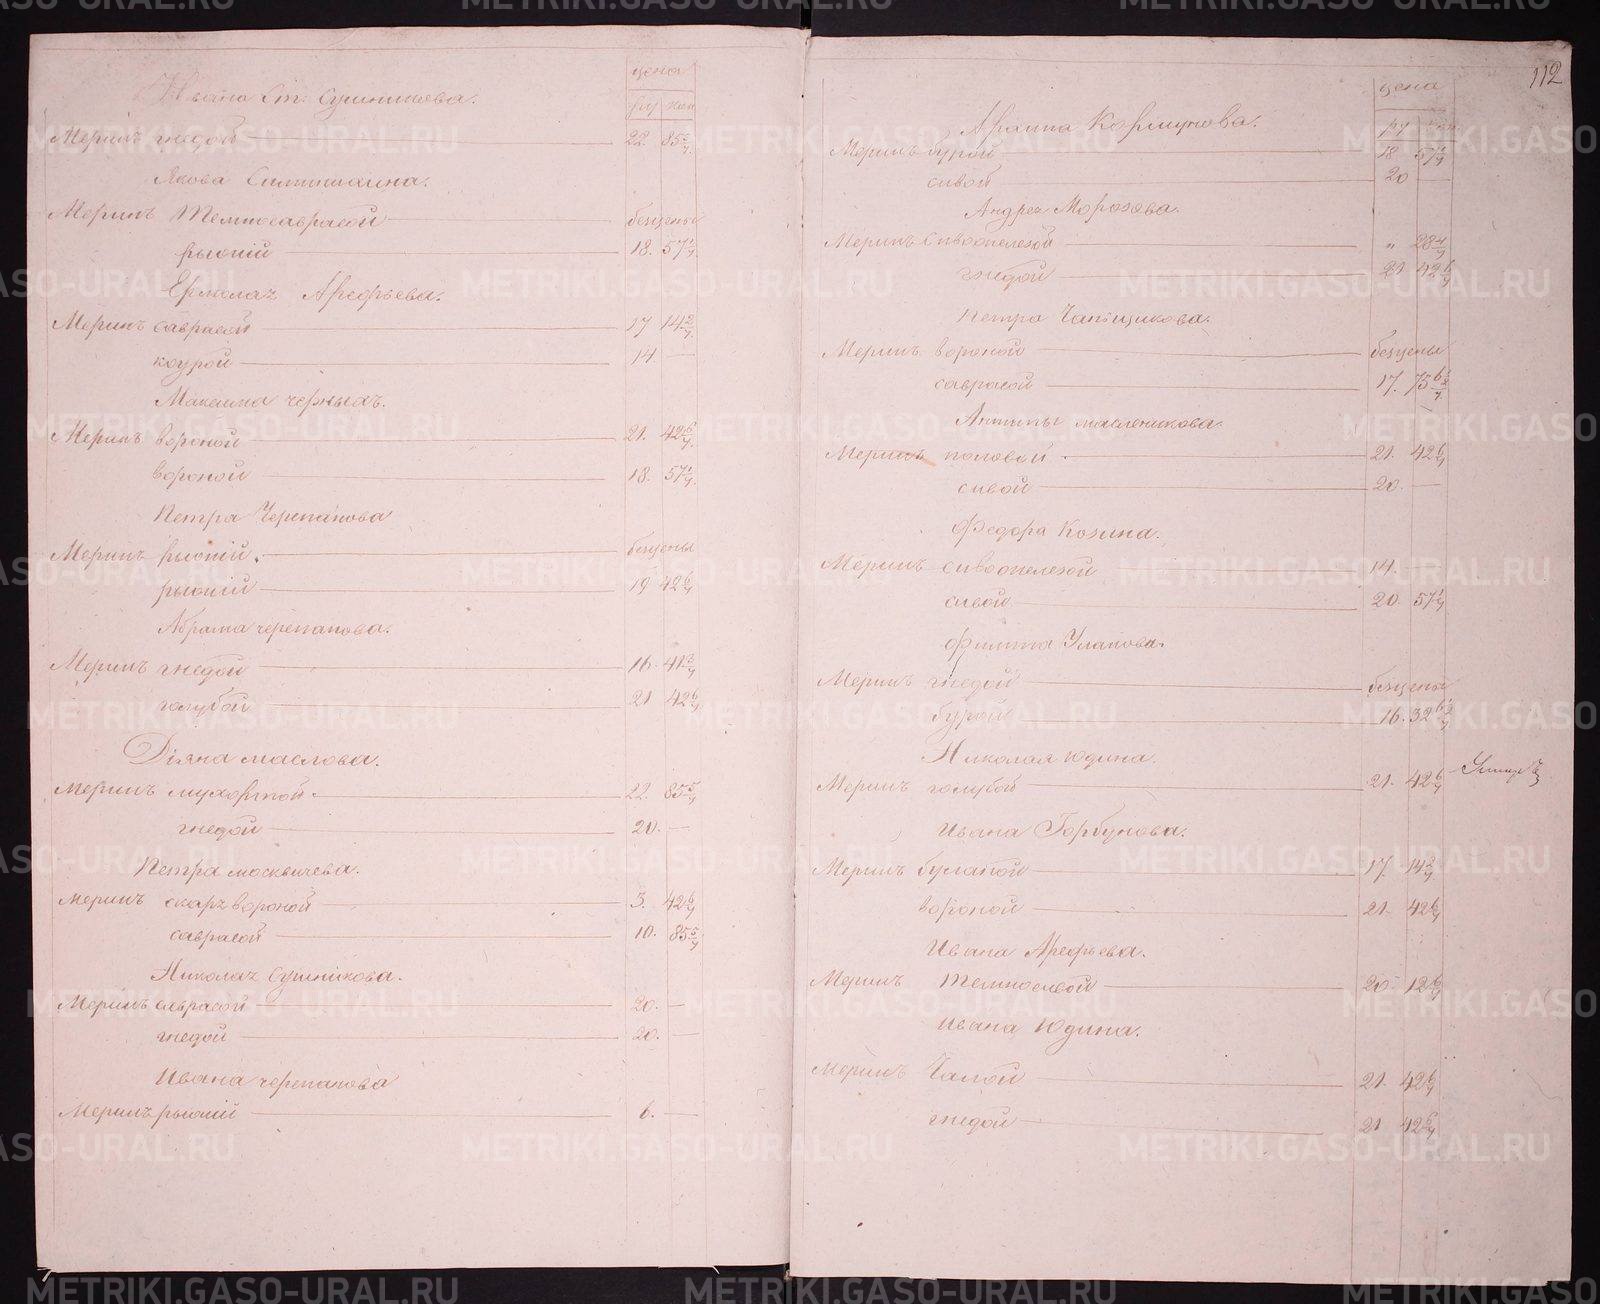 цена
Ивана Ст: Сушникова.
ру коп
Меринъ гнедой 22. 85 5/7
Якова
Меринъ Темносаврасой безцены
рыжій 18. 57 1/7
Ермолая Арефьева.
Меринъ саврасой 17 14 2/7
коурой 14 —
Максима черныхъ.
Меринъ вороной 21. 42 6/7
вороной 18. 57 1/7
Петра Черепанова
Меринъ рыжій безцены
рыжій 19 42 6/7
Абрама черепанова.
Меринъ гнедой 16. 41 3/7
голубой 21 42 6/7
Діяна маслова.
Меринъ мухортой 22. 85 5/7
гнедой 20. —
Петра москвичева.
меринъ скаря вороной 3. 42 6/7
саврасой 10. 85 5/7
Николая Сушникова.
Меринъ саврасой 20. —
гнедой 20. —
Ивана черепанова
Меринъ рыжій 6. —
112
цена
ру коп
Меринъ бурой 18 57 1/7
сивой 20 —
Андрея Морозова.
Меринъ сивожелезой „ 28 4/7
гнедой 21 42 6/7
Петра
Меринъ вороной безцены
саврасой 17. 75
Антипы масленикова.
Меринъ половой 21. 42 6/7
сивой 20. —
Федора Козина.
Меринъ сивожелезой 14. —
сивой 20 57 1/7
Филипа Уланова.
Меринъ гнедой безцены
бурой 16. 32
Николая Юдина.
Меринъ голубой 21. 42 6/7
Ивана Горбунова.
Меринъ буланой 17. 14 2/7
вороной 21. 42 6/7
Ивана Арефьева.
Меринъ Темносивой 20 12 6/7
Ивана Юдина.
Меринъ Чалой 21. 42 6/7
гнедой 21 42 6/7
METRIKI.GASO-URAL.RU